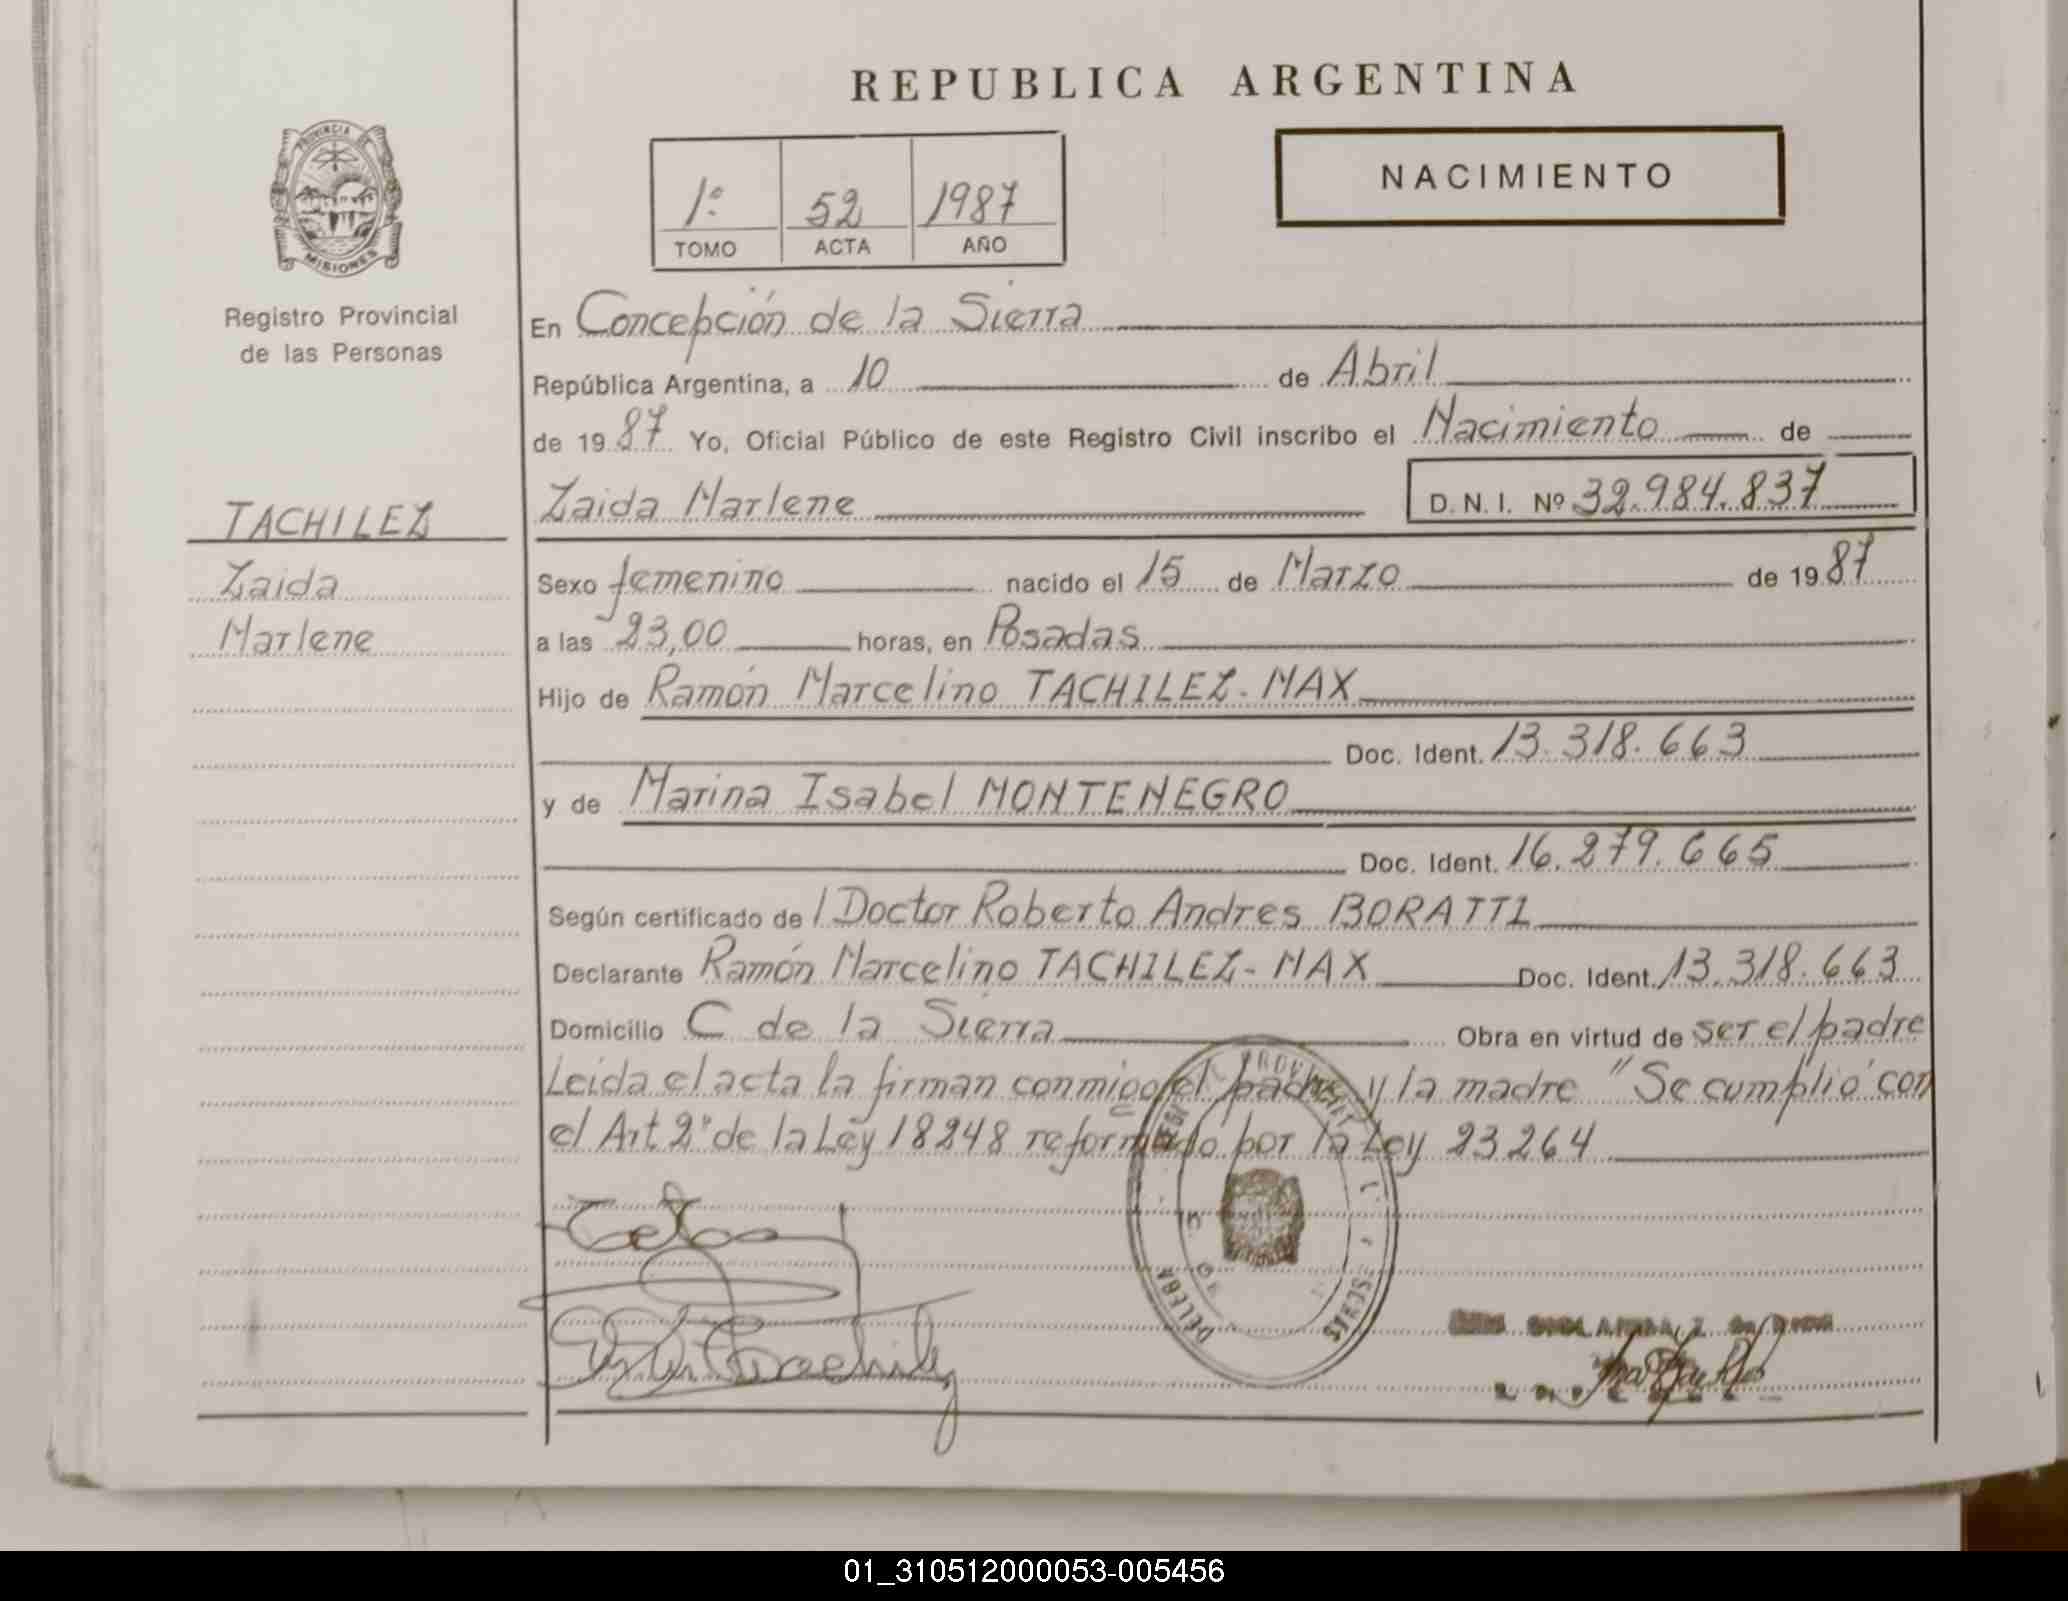 REPUBLICA ARGENTINA
PROVINCIA DE
MISIONES
Registro Provincial
de las Personas
1º 52 1987
TOMO ACTA AÑO
NACIMIENTO
En Concepción de la Sierra
República Argentina, a 10 de Abril
de 1987 Yo, Oficial Público de este Registro Civil inscribo el Nacimiento de
Zaida Marlene D.N.I. Nº 32.984.837
TACHILEZ
Zaida
Marlene
Sexo femenino nacido el 15 de Marzo de 1987
a las 23,00 horas, en Posadas
Hijo de Ramón Marcelino TACHILEZ-MAX
Doc. Ident. 13.318.663
y de Marina Isabel MONTENEGRO
Doc. Ident. 16.279.665
Según certificado de l Doctor Roberto Andres BORATTI
Declarante Ramón Marcelino TACHILEZ-MAX Doc. Ident. 13.318.663
Domicilio C de la Sierra Obra en virtud de ser el padre
Leida el acta la firman conmigo el padre y la madre "Se cumplió con
el Art 2º de la Ley 18248 reformado por la Ley 23264
01_310512000053-005456